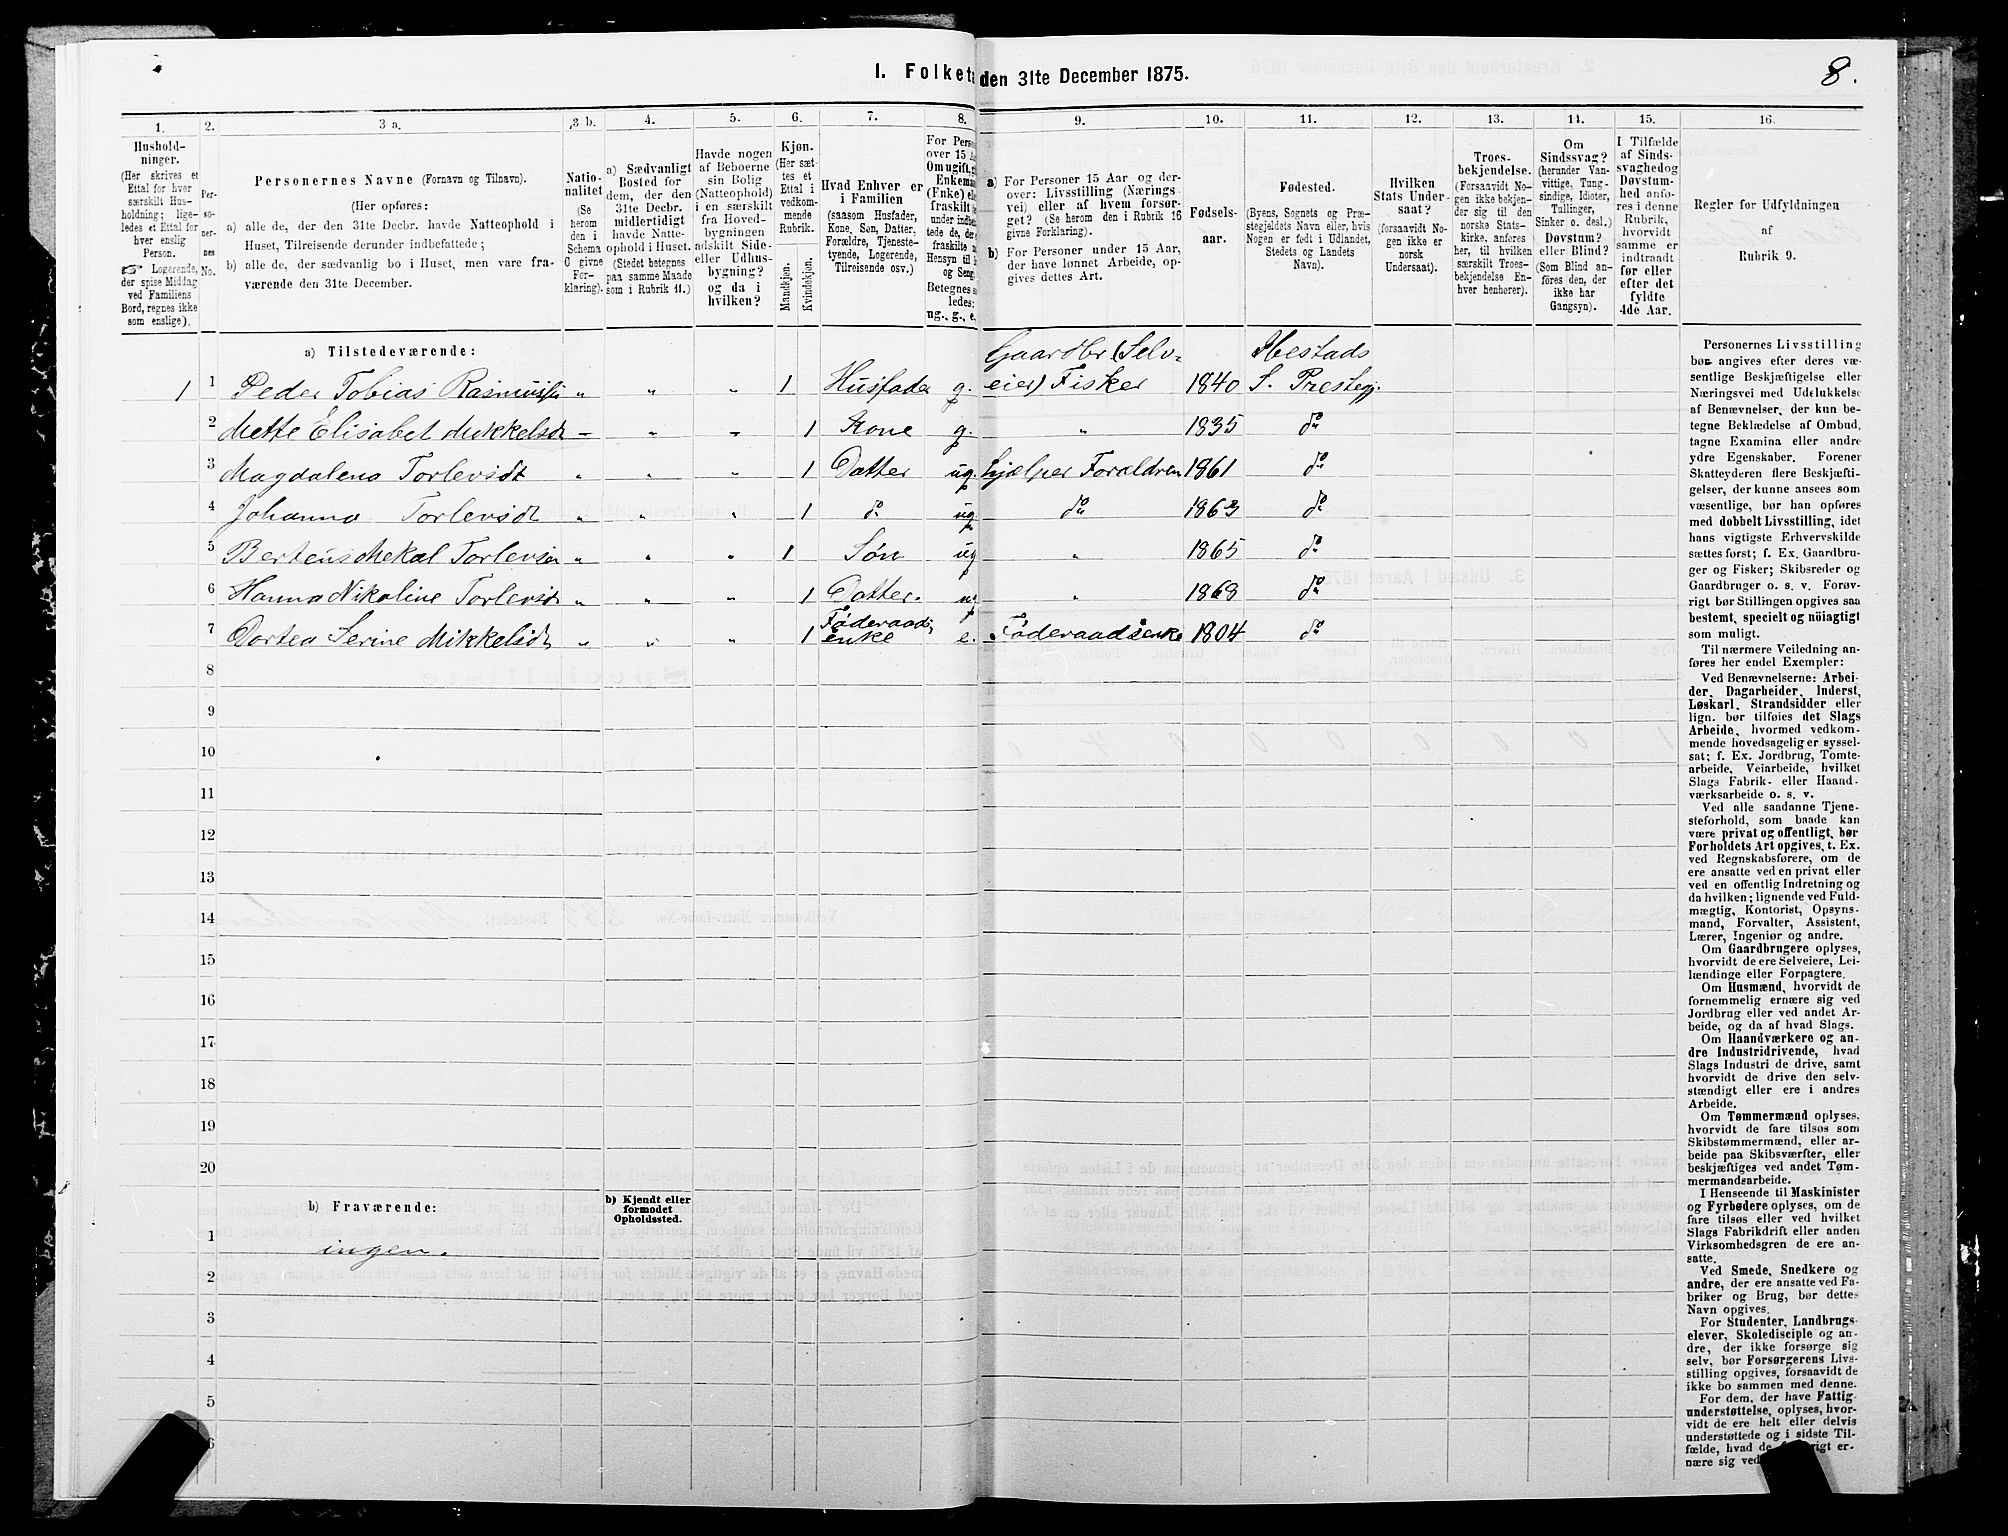 8.
I. Folket den 31te December 1875.
1. 2. 3 a. 3 b. 4. 5. 6. 7. 8. 9. 10. 11. 12. 13. 14. 15. 16.
Hushold-
ninger.
(Her skrives et
Ettal for hver
særskilt Hus-
holdning; lige-
ledes et Ettal for
hver enslig
Person.
Logerende,
der spise Middag
ved Familiens
Bord, regnes ikke
som enslige).
Per-
so-
ner-
nes
No.
Personernes Navne (Fornavn og Tilnavn).
(Her opføres:
a) alle de, der den 31te Decbr. havde Natteophold i
Huset, Tilreisende derunder indbefattede;
b) alle de, der sædvanlig bo i Huset, men vare fra-
værende den 31te December.
Natio-
nalitet
(Se
herom
den i
Schema
C givne
For-
klaring).
a) Sædvanligt
Bosted for
dem, der den
31te Decbr.
midlertidigt
havde Natte-
ophold i Huset.
(Stedet betegnes
paa samme Maade
som i Rubrik 11.)
Havde nogen
af Beboerne
sin Bolig
(Natteophold)
i en særskilt
fra Hoved-
bygningen
adskilt Side-
eller Udhus-
bygning?
og da i
hvilken?
Kjøn.
(Her sæt-
tes et
Ettal i
vedkom-
mende
Rubrik.
Mandkjøn.
Kvindekjøn.
Hvad Enhver er
i Familien
(saasom Husfader,
Kone, Søn, Datter,
Forældre, Tjeneste-
tyende, Logerende,
Tilreisende osv.)
For Perso
over 15 A
Om ugift, g
Enkema
(Enke) el
fraskilt
under indbe
tede de, der
fraskilte
Hensyn til
og Seng
Betegnes s
ledes:
ug., g., e.
a) For Personer 15 Aar og der-
over: Livsstilling (Nærings-
vei) eller af hvem forsør-
get? (Se herom den i Rubrik 16
givne Forklaring).
b) For Personer under 15 Aar,
der have lønnet Arbeide, op-
gives dettes Art.
Fødsels-
aar.
Fødested.
(Byens, Sognets og Præ-
stegjeldets Navn eller, hvis
Nogen er født i Udlandet,
Stedets og Landets
Navn).
Hvilken
Stats Under-
saat?
(forsaavidt No-
gen ikke er
norsk
Undersaat).
Troes-
bekjendelse.
(Forsaavidt No-
gen ikke bekjen-
der sig til den
norske Stats-
kirke, anføres
her, til hvilken
særskilt Troes-
bekjendelse En-
hver henhører).
Om
Sindssvag?
(herunder Van-
vittige, Tung-
sindige, Idioter,
Tullinger,
Sinker o. desl.)
Døvstum?
eller Blind?
(Som Blind an-
føres den, der
ikke har
Gangsyn).
I Tilfælde
af Sinds-
svaghed og
Døvstum-
hed anfø-
res i denne
Rubrik,
hvorvidt
samme er
indtraadt
før eller
efter det
fyldte
4de Aar.
Regler for Udfyldningen
af
Rubrik 9.
a) Tilstedeværende:
Gaardbr (Selv- Ibestads
1 1 Peder Tobias Rasmuss " " " 1 Husfader g. eier) Fisker 1840 S. Prestegj
2 Mette Elisabet Mikkelsdt - " " 1 Kone g. " 1835 do
3 Magdalena Torlevsdt " " " 1 Datter ug. hjælper Forældren 1861 do
4 Johanna Torlevsdt " " " 1 do ug. do 1863 do
5 Berteus Mekal Torlevsen " " " 1 Søn ug " 1865 do
6 Hanna Nikoline Torlevsdt " " " 1 Datter. ug " 1868 do
Føderaads
7 Dortea Serine Mikkelsdt " " " 1 enke e. Føderaadsenke 1804 do
8
9
10
11
12
13
14
15
16
17
18
19
20
b) Fraværende:
b) Kjendt eller
formodet
Opholdssted.
1 ingen.
2
3
4
5
6
Personernes Livsstilling
bør angives efter deres væ-
sentlige Beskjæftigelse eller
Næringsvei med Udelukkelse
af Benævnelser, der kun be-
tegne Beklædelse af Ombud,
tagne Examina eller andre
ydre Egenskaber. Forener
Skatteyderen flere Beskjæfti-
gelser, der kunne ansees som
væsentlige, bør han opføres
med dobbelt Livsstilling, idet
hans vigtigste Erhvervskilde
sættes først; f. Ex. Gaardbru-
ger og Fisker; Skibsreder og
Gaardbruger o. s. v. Forøv-
rigt bør Stillingen opgives saa
bestemt, specielt og nöiagtigt
som muligt.
Til nærmere Veiledning an-
føres her endel Exempler:
Ved Benævnelserne: Arbei-
der, Dagarbeider, Inderst,
Løskarl, Strandsidder eller
lign. bør tilføies det Slags
Arbeide, hvormed vedkom-
mende hovedsagelig er syssel-
sat; f. Ex. Jordbrug, Tomte-
arbeide, Veiarbeide, hvilket
Slags Fabrik- eller Haand-
værksarbeide o. s. v.
Ved alle saadanne Tjene-
steforhold, som baade kan
være privat og offentligt, bør
Forholdets Art opgives, t. Ex.
ved Regnskabsførere, om de
ere ansatte ved en privat eller
ved en offentlig Indretning og
da hvilken; lignende ved Fuld-
mægtig, Kontorist, Opsyns-
mand, Forvalter, Assistent,
Lærer, Ingeniør og andre.
Om Gaardbrugere oplyses,
hvorvidt de ere Selveiere, Lei-
lændinge eller Forpagtere.
Om Husmænd, hvorvidt de
fornemmelig ernære sig ved
Jordbrug eller ved andet Ar-
beide, og da af hvad Slags.
Om Haandværkere og an-
dre Industridrivende, hvad
Slags Industri de drive, samt
hvorvidt de drive den selv-
stændigt eller ere i andres
Arbeide.
Om Tømmermænd oplyses,
hvorvidt de fare tilsøs som
Skibstømmermænd, eller ar-
beide paa Skibsværfter, eller
beskjæftiges ved andet Tøm-
mermandsarbeide.
I Henseende til Maskinister
og Fyrbødere oplyses, om de
fare tilsøs eller ved hvilket
Slags Fabrikdrift eller anden
Virksomhedsgren de ere an-
satte.
Ved Smede, Snedkere og
andre, der ere ansatte ved Fa-
briker og Brug, bør dettes
Navn opgives.
For Studenter, Landbrugs-
elever, Skoledisciple og an-
dre, der ikke forsørge sig
selv, bør Forsørgerens Livs-
stilling opgives, forsaavidt de
ikke bo sammen med denne.
For dem, der have Fattig-
understøttelse, oplyses, hvor-
vidt de ere helt eller delvis
understøttede og i sidste Til-
fælde, hvad de rigt er-
nære sig ved